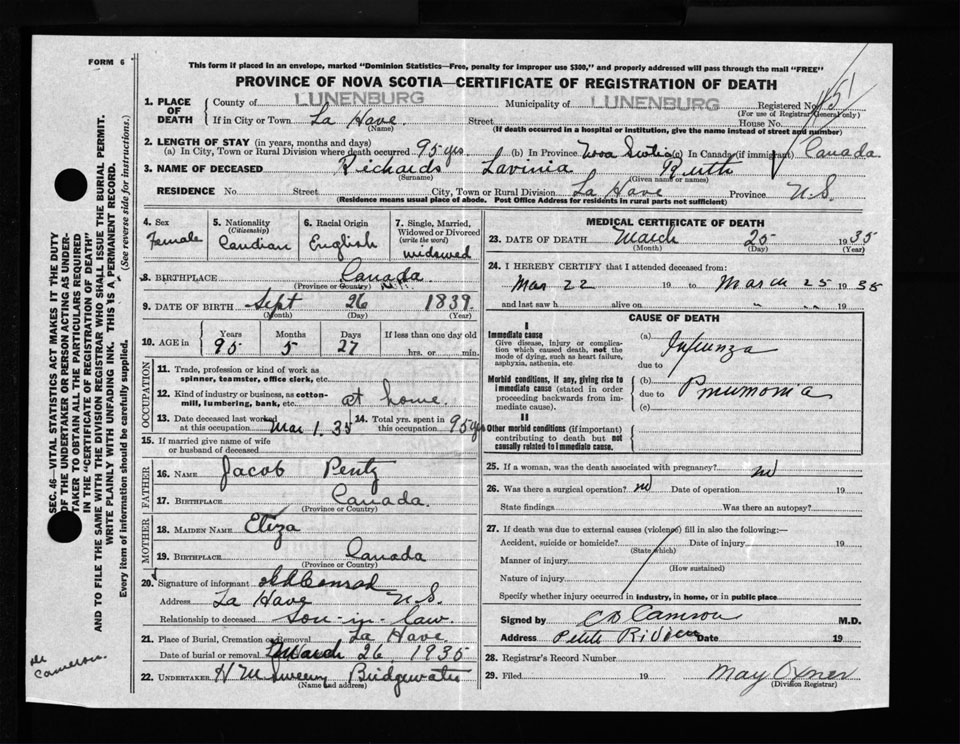 FORM 6
This form if placed in an envelope, marked "Dominion Statistics—Free, penalty for improper use $300," and properly addressed will pass through the mail "FREE"
PROVINCE OF NOVA SCOTIA—CERTIFICATE OF REGISTRATION OF DEATH
1. PLACE OF DEATH County of LUNENBURG Municipality of LUNENBURG Registered No.
(For use of Registrar General only)
If in City or Town La Have Street House No.
(Name) (If death occurred in a hospital or institution, give the name instead of street and number)
2. LENGTH OF STAY (in years, months and days)
(a) In City, Town or Rural Division where death occurred 95 yrs (b) In Province Nova Scotia (c) In Canada (if immigrant) Canada
3. NAME OF DECEASED Richards Lavinia Ruth
(Surname) (Given name or names)
RESIDENCE No. Street City, Town or Rural Division La Have Province N.S.
(Residence means usual place of abode. Post Office Address for residents in rural parts not sufficient)
4. Sex Female
5. Nationality (Citizenship) Candian
6. Racial Origin English
7. Single, Married, Widowed or Divorced (write the word) widowed
8. BIRTHPLACE Canada
(Province or Country)
9. DATE OF BIRTH Sept 26 1839
(Month) (Day) (Year)
10. AGE in Years 95 Months 5 Days 27 If less than one day old hrs. or min.
OCCUPATION
11. Trade, profession or kind of work as spinner, teamster, office clerk, etc.
12. Kind of industry or business, as cotton-mill, lumbering, bank, etc. at home
13. Date deceased last worked at this occupation Mar 1. 35 14. Total yrs. spent in this occupation 95 yrs
15. If married give name of wife or husband of deceased
FATHER
16. NAME Jacob Pentz
17. BIRTHPLACE Canada
(Province or Country)
MOTHER
18. MAIDEN NAME Eliza
19. BIRTHPLACE Canada
(Province or Country)
20. Signature of informant Conrad
Address La Have N.S.
Relationship to deceased son-in-law
21. Place of Burial, Cremation or Removal La Have
Date of burial or removal March 26 1935
22. UNDERTAKER H Sweeny Bridgewater
(Name and address)
MEDICAL CERTIFICATE OF DEATH
23. DATE OF DEATH March 25 1935
(Month) (Day) (Year)
24. I HEREBY CERTIFY that I attended deceased from:
Mar 22 19 to March 25 1935
and last saw h alive on " " 19
CAUSE OF DEATH
I
Immediate cause
Give disease, injury or complication which caused death, not the mode of dying, such as heart failure, asphyxia, asthenia, etc.
(a) Influenza
due to
Morbid conditions, if any, giving rise to immediate cause (stated in order proceeding backwards from immediate cause).
(b) Pneumonia
due to
(c)
II
Other morbid conditions (if important) contributing to death but not causally related to immediate cause.
25. If a woman, was the death associated with pregnancy? no
26. Was there a surgical operation? no Date of operation 19
State findings Was there an autopsy?
27. If death was due to external causes (violence) fill in also the following:
Accident, suicide or homicide? Date of injury 19
(State which)
Manner of injury
(How sustained)
Nature of injury
Specify whether injury occurred in Industry, in home, or in public place
Signed by C B Cameron M.D.
Address Petite Riviere Date 19
28. Registrar's Record Number
29. Filed 19 May Oxner
(Division Registrar)
SEC. 46—VITAL STATISTICS ACT MAKES IT THE DUTY
OF THE UNDERTAKER OR PERSON ACTING AS UNDER-
TAKER TO OBTAIN ALL THE PARTICULARS REQUIRED
IN THE "CERTIFICATE OF REGISTRATION OF DEATH"
AND TO FILE THE SAME WITH THE DIVISION REGISTRAR WHO SHALL ISSUE THE BURIAL PERMIT.
WRITE PLAINLY WITH UNFADING INK. THIS IS A PERMANENT RECORD.
Every item of information should be carefully supplied. (See reverse side for instructions.)
Dr Cameron.